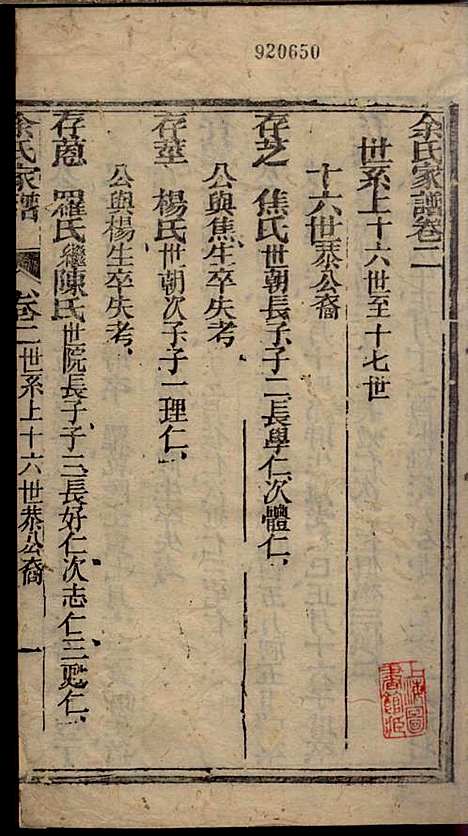 920650
余氏家譜卷二
世系上十六世至十七世
十六世㤗公裔
存芝 焦氏世朝長子子二長學仁次體仁
公與焦生卒失考
存莖 楊氏世朝次子子一理仁
公與楊生卒失考
存蔥 羅氏繼陳氏世院長子子三長好仁次志仁三
余氏家譜 卷二世系上十六世㤗公裔 一
上海圖書館藏